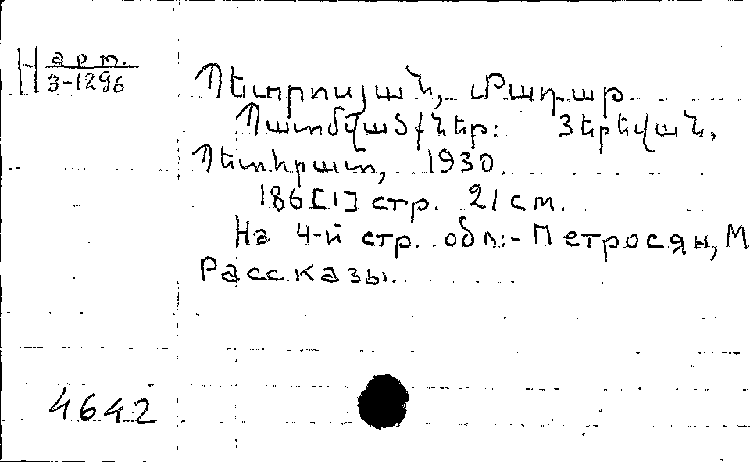 Н арм.
3-1296
Պետրոսյան, Մադար
Պատմվածքներ: Յերեվան,
Պետհրատ, 1930.
186[1] стр. 21 см.
На 4-й стр. обл:- Петросян, М
Рассказы.
4642